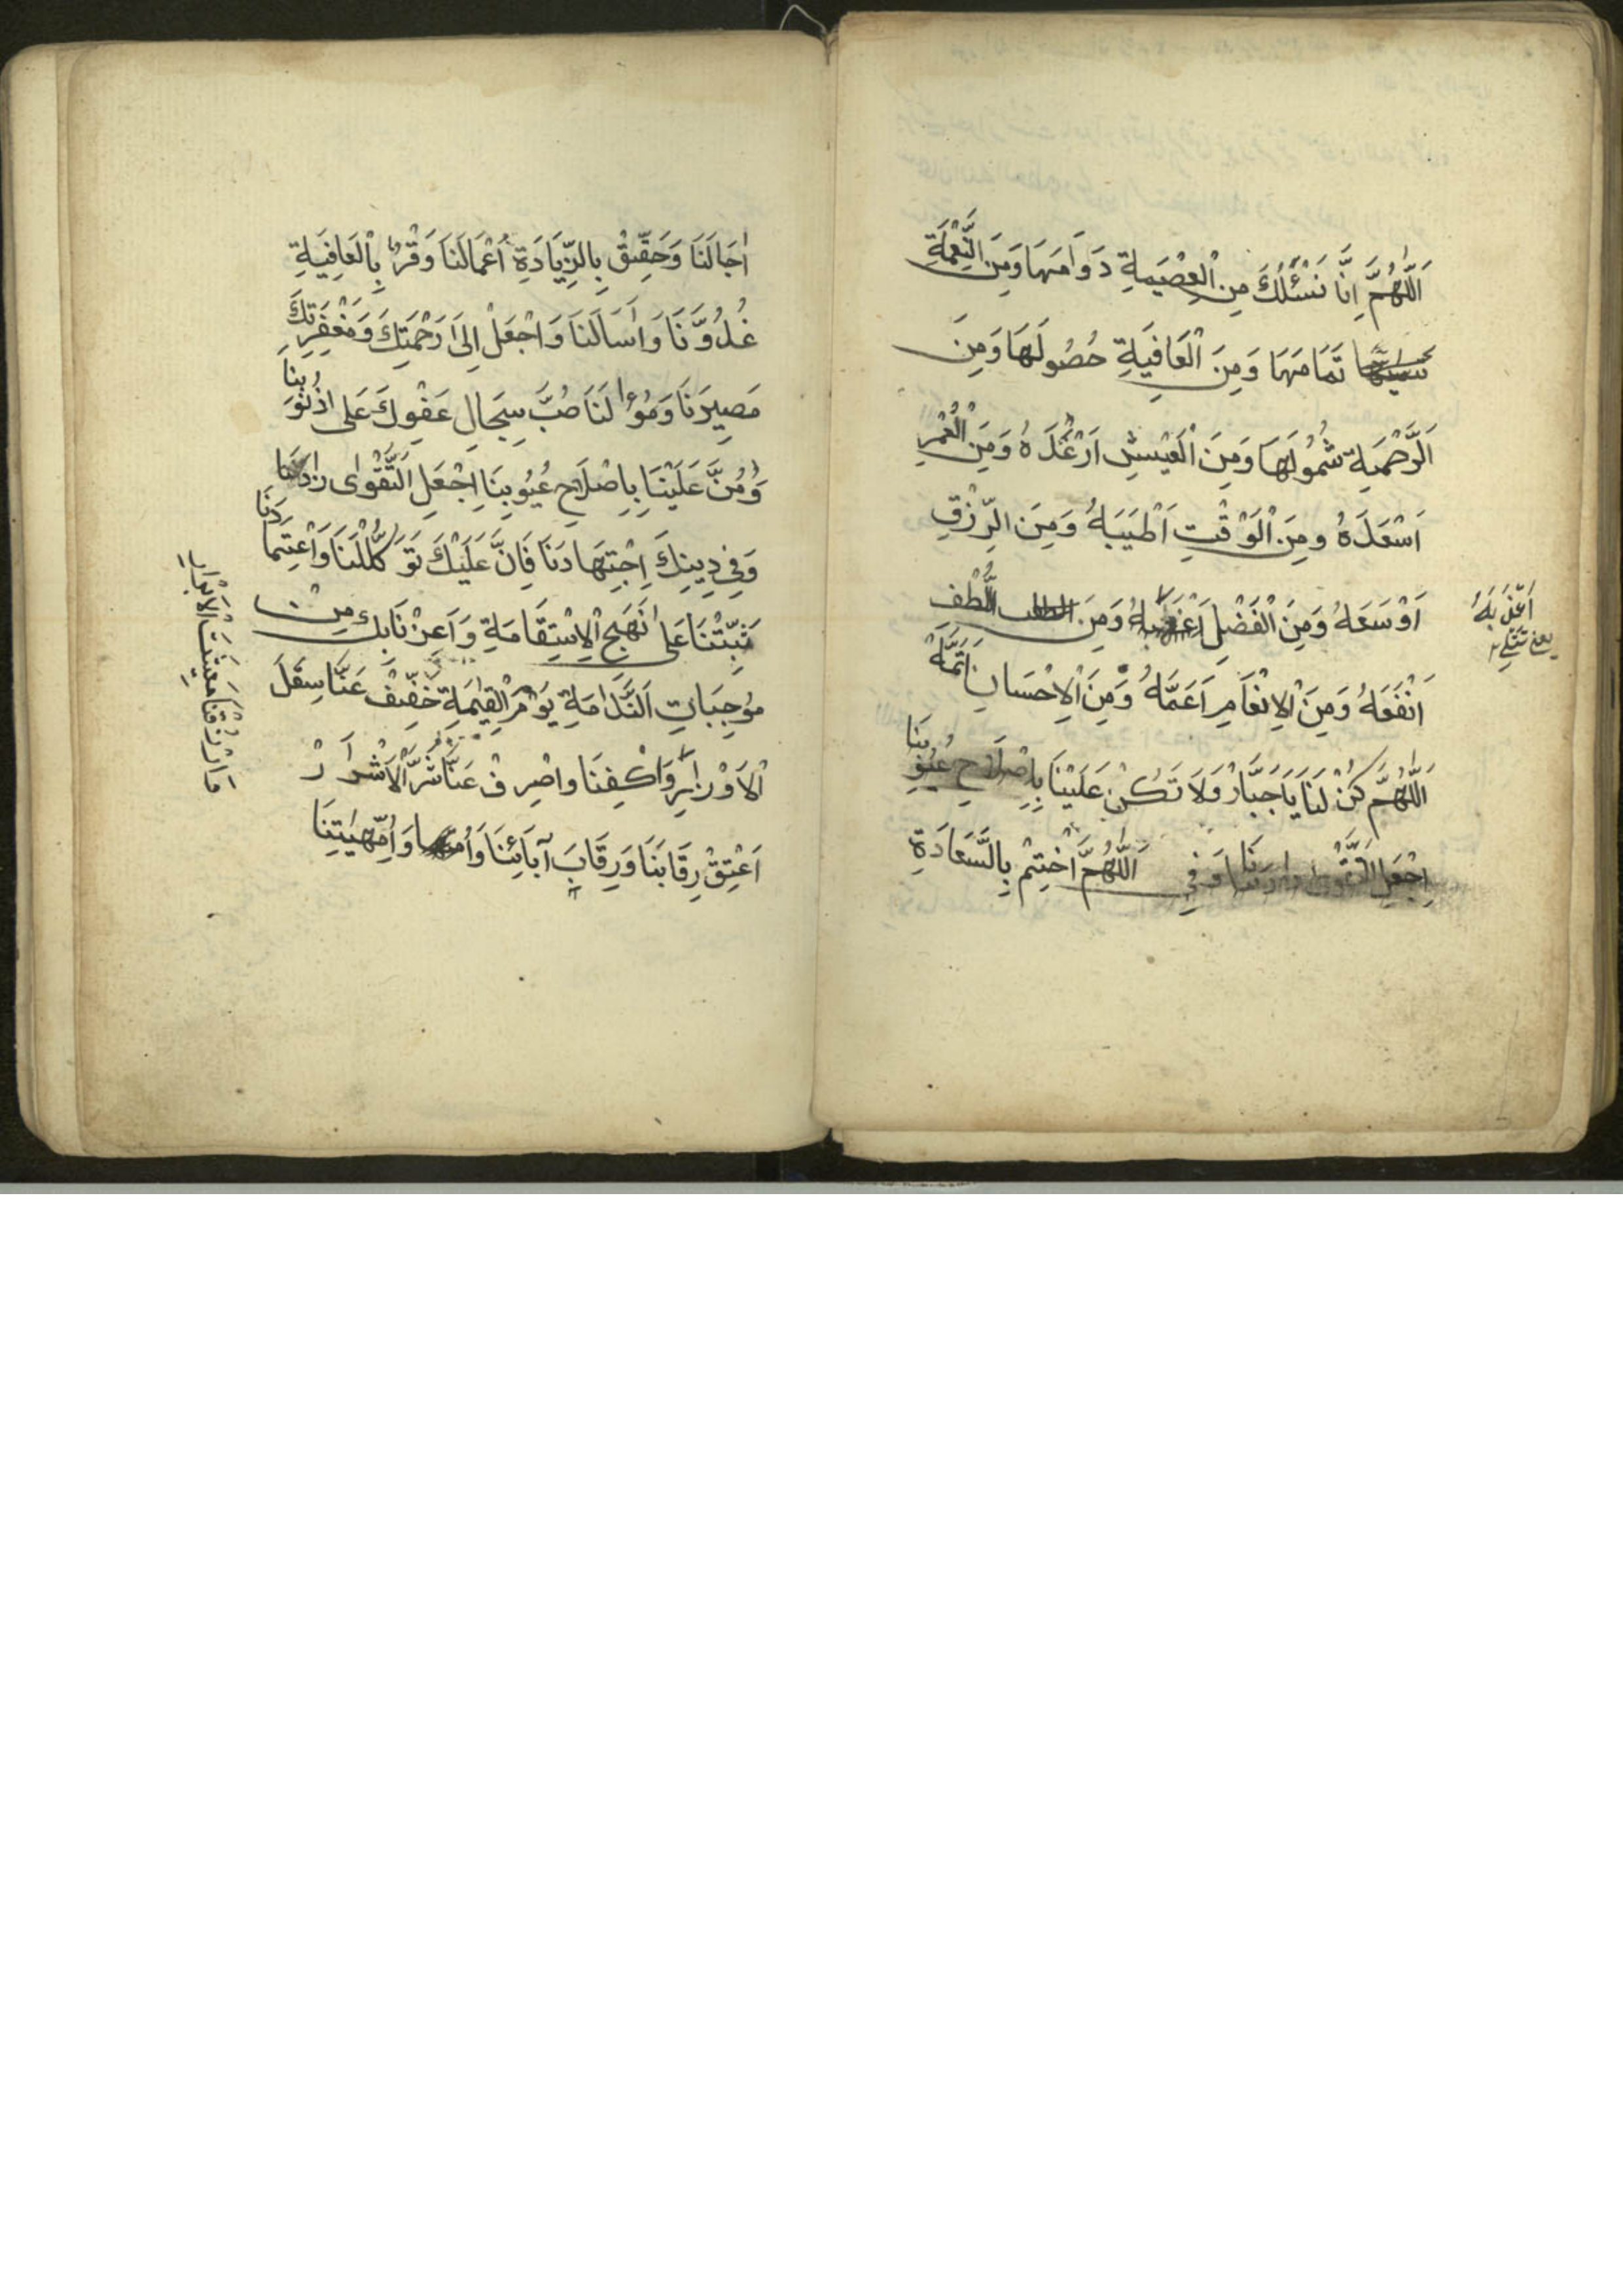 اَللّٰهُمَّ اِنَّا نَسْئَلُكَ مِنَ الْعِصْمَةِ دَوَامَهَا وَمِنَ النِّعْمَةِ
تَمَامَهَا وَمِنَ الْعَافِيَةِ حُصُولَهَا وَمِنَ
اَلرَّحْمَةِ شُمُولَهَا وَمِنَ الْعَيْشِ اَرْغَدَهُ وَمِنَ الْعُمْرِ
اَسْعَدَهُ وَمِنَ الْوَقْتِ اَطْيَبَهُ وَمِنَ الرِّزْقِ
اَوْسَعَهُ وَمِنَ الْفَضْلِ وَمِنَ اللُّطْفِ
اَعْذَبَهُ
اَنْفَعَهُ وَمِنَ الْاِنْعَامِ اَعَمَّهُ وَمِنَ الْاِحْسَانِ اَتَمَّهُ
اَللّٰهُمَّ كُنْ لَنَا يَا جَبَّارْ وَلَا تَكُنْ عَلَيْنَا بِاِصْلَاحِ عُيُوبِنَا
اِجْعَلِ التَّقْوٰى زَادَنَا وَفِي اَللّٰهُمَّ اخْتِمْ بِالسَّعَادَةِ
اٰجَالَنَا وَحَقِّقْ بِالزِّيَادَةِ اَعْمَالَنَا وَقْرُنْ بِالْعَافِيَةِ
غُدُوَّنَا وَاٰسَالَنَا وَاجْعَلْ اِلٰى رَحْمَتِكَ وَمَغْفِرَتِكَ
مَصِيرَنَا وَمَؤُالَنَا صُبَّ سِجَالِ عَفْوِكَ عَلٰى ذُنُوبِنَا
وَمُنَّ عَلَيْنَا بِاِصْلَاحِ عُيُوبِنَا اِجْعَلِ التَّقْوٰى زَادَنَا
وَفِي دِينِكَ اِجْتِهَادَنَا فَاِنَّ عَلَيْكَ تَوَكُّلَنَا وَاعْتِمَادَنَا
ثَبِّتْنَا عَلٰى نَهَجِ الْاِسْتِقَامَةِ وَاَعِزْنَا بِكَ مِنْ
مُوجِبَاتِ النَّدَامَةِ يَوْمَ الْقِيٰمَةِ خَفِّفْ عَنَّا ثِقَلَ
الْاَوْزَارِ وَاكْفِنَا وَاصْرِفْ عَنَّا شَرَّ الْاَشْرَارْ
اَعْتِقْ رِقَابَنَا وَرِقَابَ آبَائِنَا وَاُمَّهٰيتِنَا
وَارْزُقْنَا مَعِيشَتَ الْاَبْرَارِ